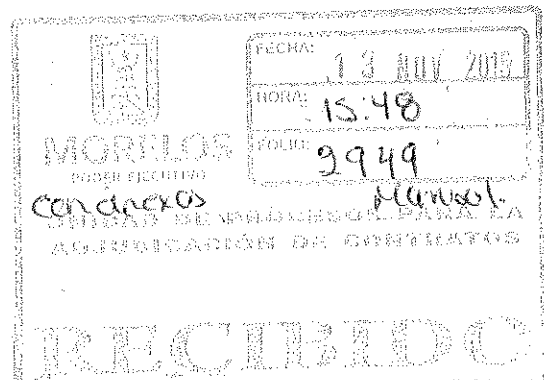 FECHA: 13 NOV 2015
HORA: 15:48
MORELOS
PODER EJECUTIVO
FOLIO: 2949
con anexos
UNIDAD DE PROCESOS PARA LA
ADJUDICACIÓN DE CONTRATOS
RECIBIDO